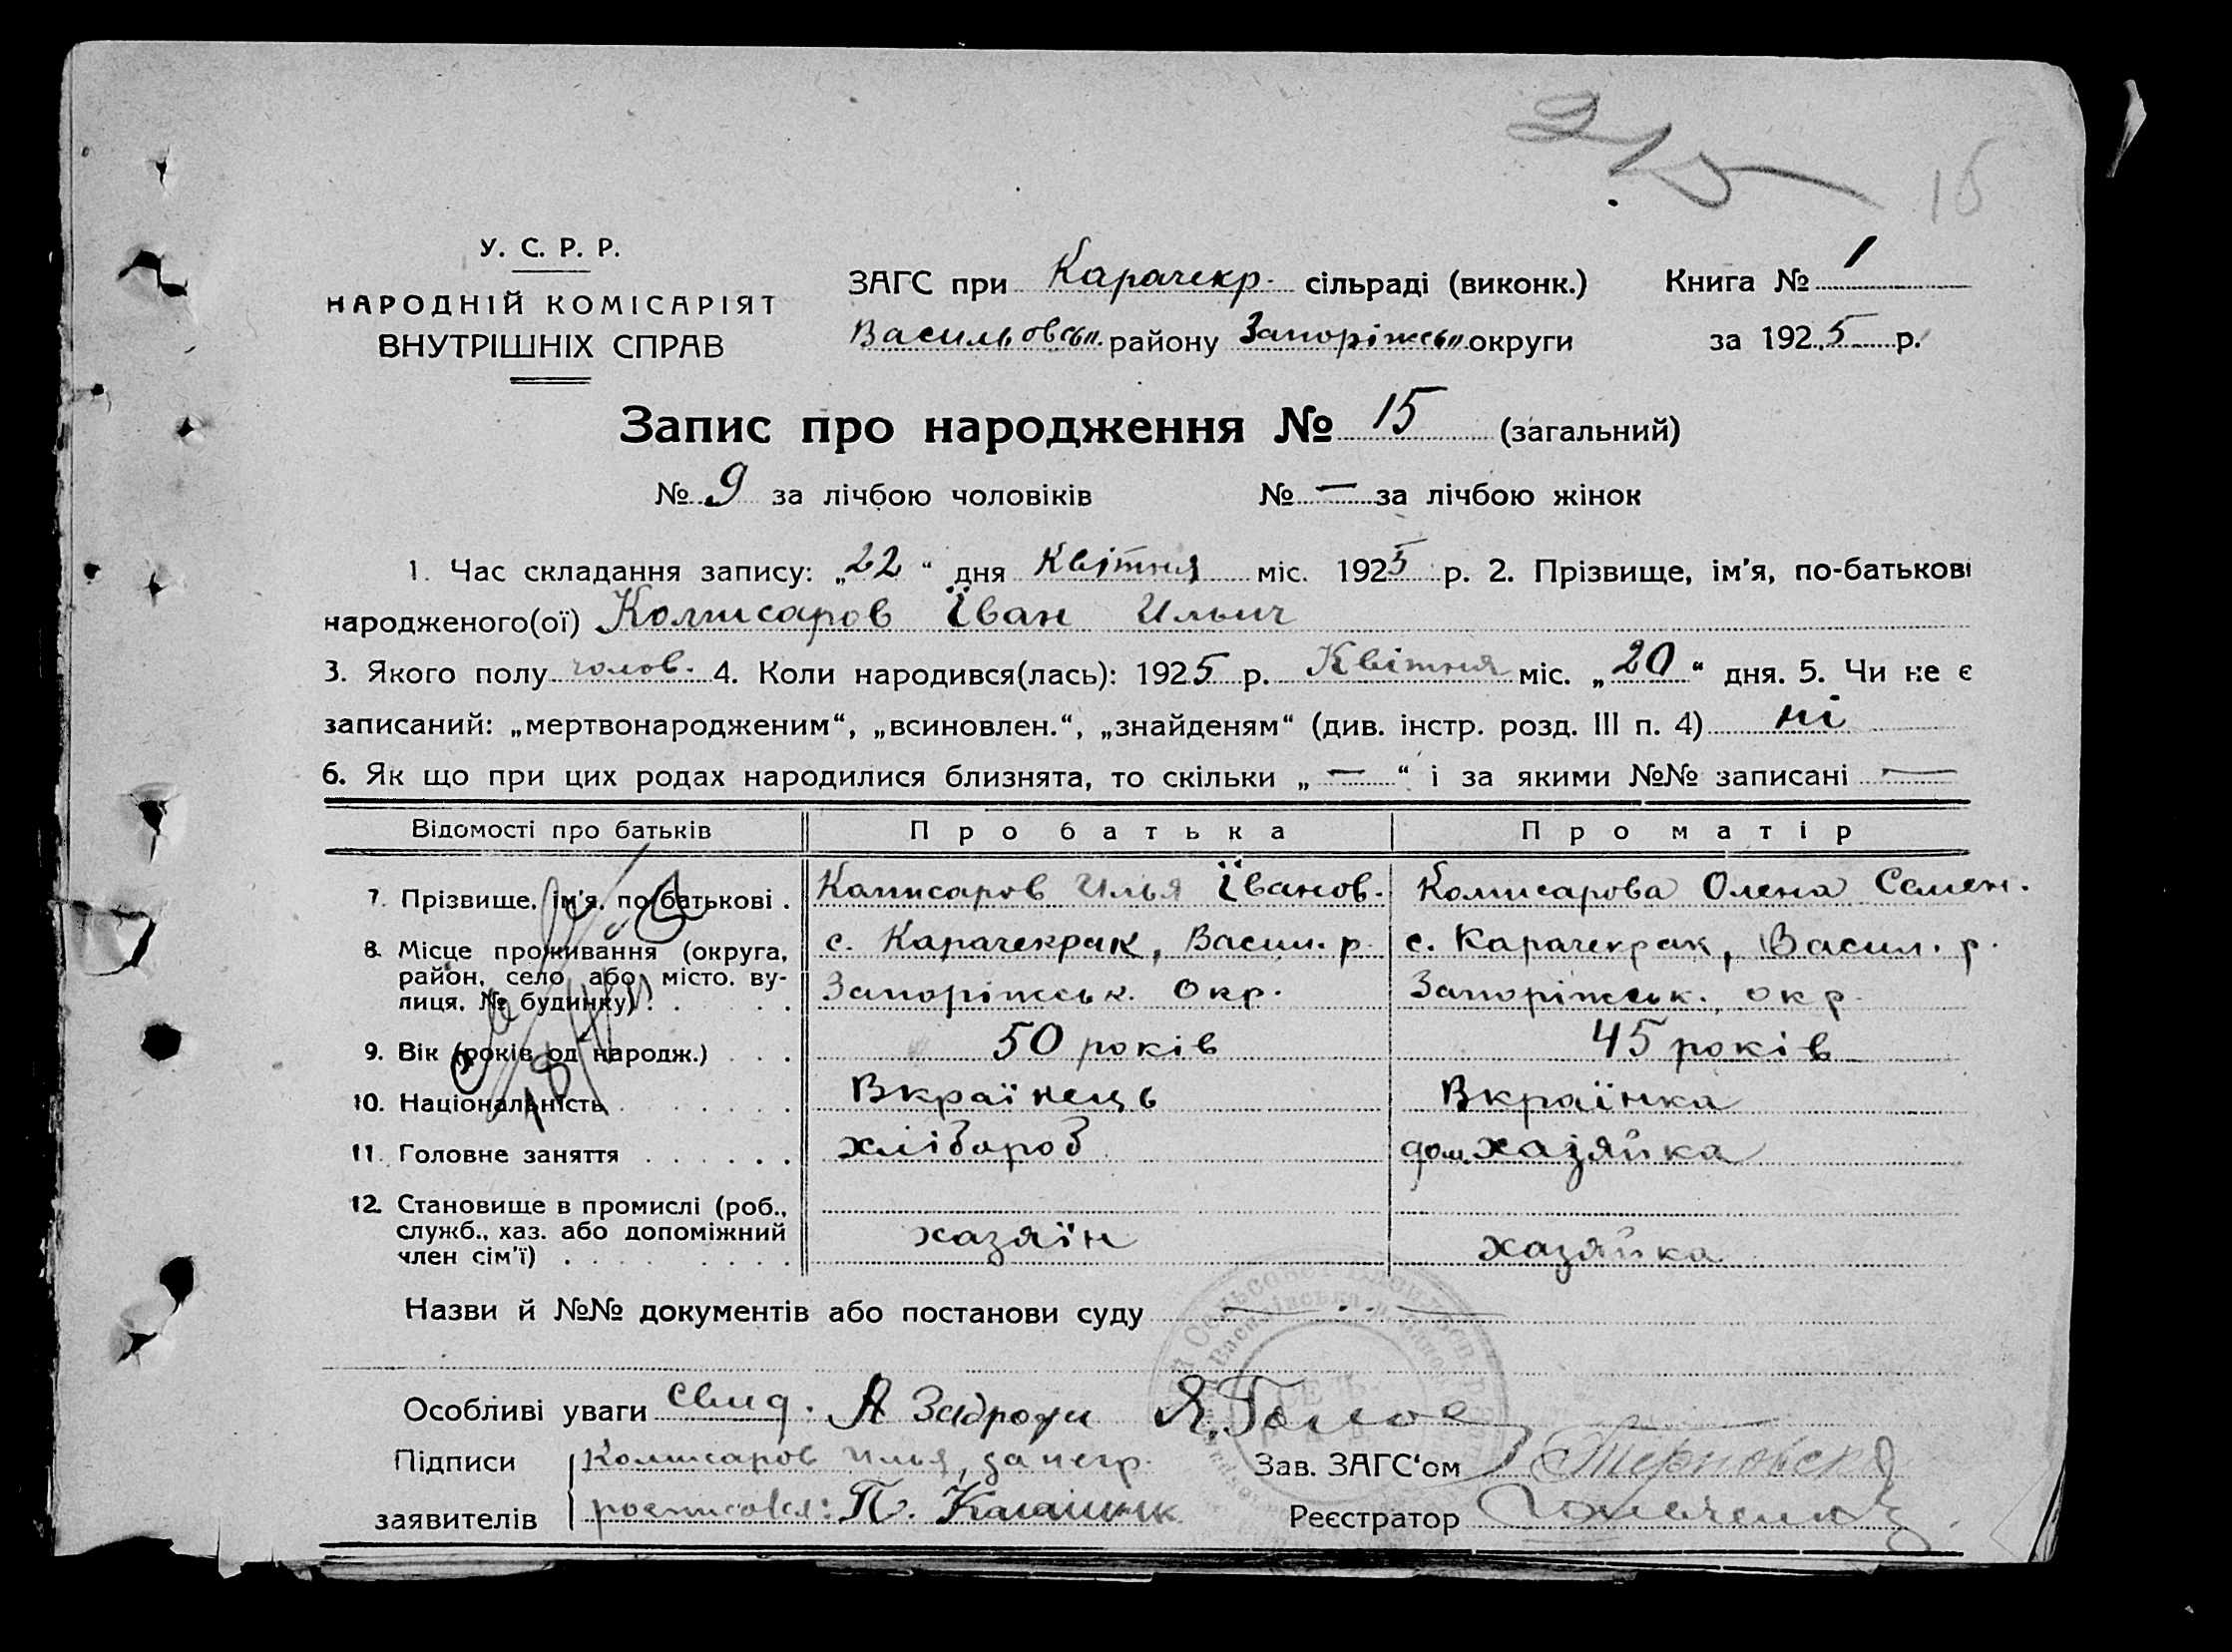 15
У. С. Р. Р.
НАРОДНІЙ КОМІСАРІЯТ
ВНУТРІШНІХ СПРАВ
ЗАГС при Карачекр. сільраді (виконк.) Книга № 1
Васильовськ. району Запоріжськ округи за 1925 р.
Запис про народження № 15 (загальний)
№ 9 за лічбою чоловіків № — за лічбою жінок
1. Час складання запису: „22“ дня Квітня міс. 1925 р. 2. Прізвище, ім'я, по-батькові
народженого(ої) Комисаров Їван Ильич
3. Якого полу чолов. 4. Коли народився(лась): 1925 р. Квітня міс. „20“ дня. 5. Чи не є
записаний: „мертвонародженим“, „всиновлен.“, „знайденям“ (див. інстр. розд. III п. 4) ні
6. Як що при цих родах народилися близнята, то скільки „—“ і за якими №№ записані —
Відомості про батьків Про батька Про матір
7. Прізвище, ім'я, по-батькові . Комисаров Илья Їванов. Комисарова Олена Семен.
8. Місце проживання (округа, с. Карачекрак, Васил. р. с. Карачекрак, Васил. р.
район, село або місто, ву-
лиця, № будинку) . . . Запоріжськ. окр. Запоріжськ. окр.
9. Вік (років од народж.) . . . 50 років 45 років
10. Національність . . . . . . Вкраїнець Вкраїнка
11. Головне заняття . . . . . . хлібороб дом. хазяйка
12. Становище в промислі (роб.,
служб., хаз. або допоміжний хазяїн хазяйка
член сім'ї) . . . . . . .
Назви й №№ документів або постанови суду —
Особливі уваги свид. А Задрога Я.
Підписи Комисаров Илья, за негр. Зав. ЗАГС'ом
заявителів росписався: П. Реєстратор